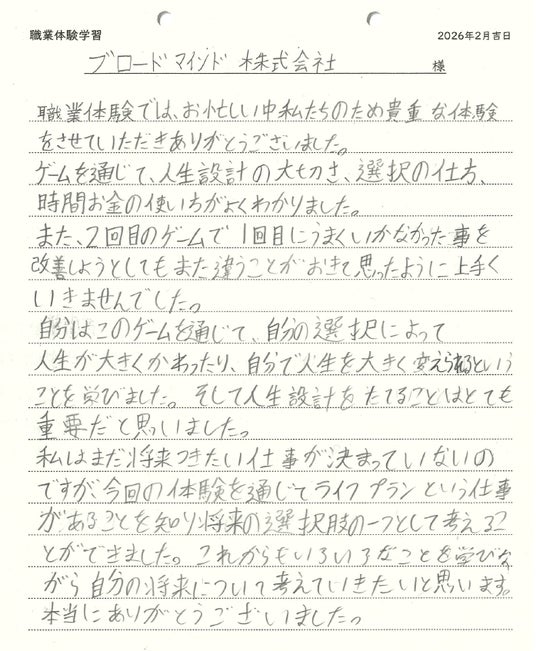 職業体験学習
2026年2月吉日
ブロードマインド 株式会社 様
職業体験では、お忙しい中私たちのため貴重な体験
をさせていただきありがとうございました。
ゲームを通じて、人生設計の大切さ、選択の仕方、
時間お金の使い方がよくわかりました。
また、2回目のゲームで1回目にうまくいかなかった事を
改善しようとしてもまた違うことがおきて思ったように上手く
いきませんでした。
自分はこのゲームを通じて、自分の選択によって
人生が大きくかわったり、自分で人生を大きく変えられるという
ことを学びました。そして人生設計をたてることはとても
重要だと思いました。
私はまだ将来つきたい仕事が決まっていないの
ですが、今回の体験を通じてライフプランという仕事
があることを知り将来の選択肢の一つとして考えるこ
とができました。これからもいろいろなことを学びな
がら自分の将来について考えていきたいと思います。
本当にありがとうございました。